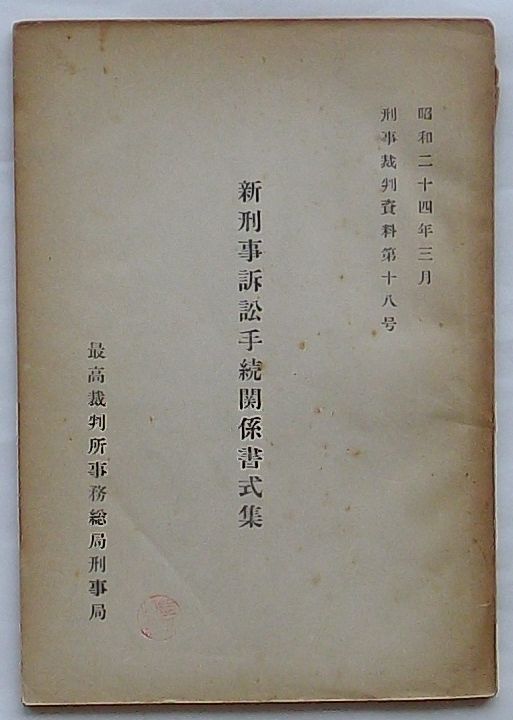 昭和二十四年三月
刑事裁判資料第十八号
新刑事訴訟手続関係書式集
最高裁判所事務総局刑事局